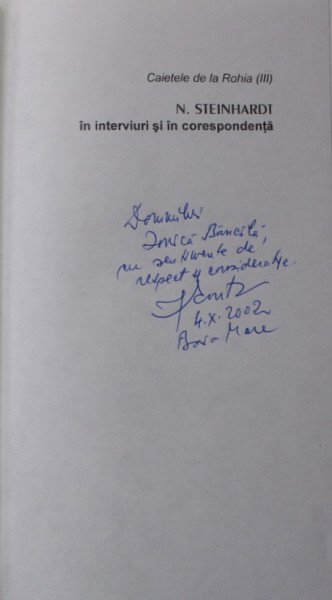 Caietele de la Rohia (III)
N. STEINHARDT
în interviuri și în corespondență
Domnului
Ionică Băncilă,
cu sentimente de
respect și considerație
4.X.2002
Baia Mare